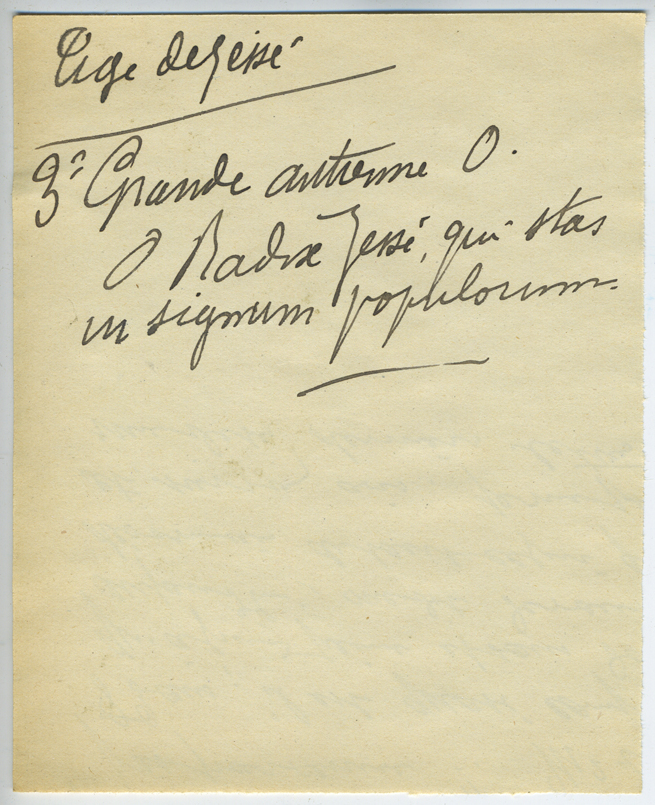 Tige de Jessé
3e Grande antienne O.
O Radix Jessé, qui stas
in signum populorum.